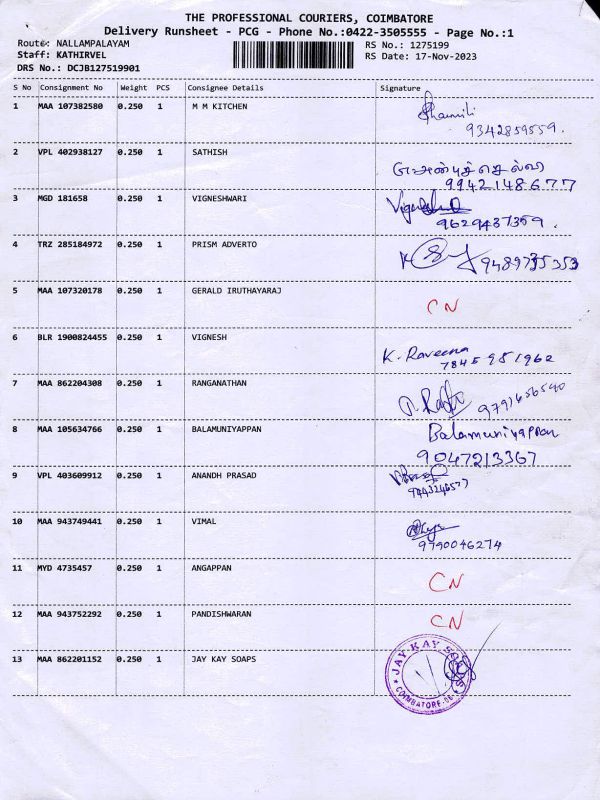 THE PROFESSIONAL COURIERS, COIMBATORE
Delivery Runsheet - PCG - Phone No.:0422-3505555 - Page No.:1
Route: NALLAMPALAYAM
RS No.: 1275199
Staff: KATHIRVEL
RS Date: 17-Nov-2023
DRS No.: DCJB127519901
S No Consignment No Weight PCS Consignee Details Signature
1 MAA 107382580 0.250 1 M M KITCHEN
9342859559.
2 VPL 402938127 0.250 1 SATHISH
9942148677
3 MGD 181658 0.250 1 VIGNESHWARI
9629437359.
4 TRZ 285184972 0.250 1 PRISM ADVERTO
9489735353
5 MAA 107320178 0.250 1 GERALD IRUTHAYARAJ
CN
6 BLR 1900824455 0.250 1 VIGNESH
K. Raveena
7845951962
7 MAA 862204308 0.250 1 RANGANATHAN
9791656540
8 MAA 105634766 0.250 1 BALAMUNIYAPPAN Balamuniyappan
9047213367
9 VPL 403609912 0.250 1 ANANDH PRASAD
9843246577
10 MAA 943749441 0.250 1 VIMAL
9790046274
11 MYD 4735457 0.250 1 ANGAPPAN CN
12 MAA 943752292 0.250 1 PANDISHWARAN CN
13 MAA 862201152 0.250 1 JAY KAY SOAPS
JAY KAY SOAPS
COIMBATORE